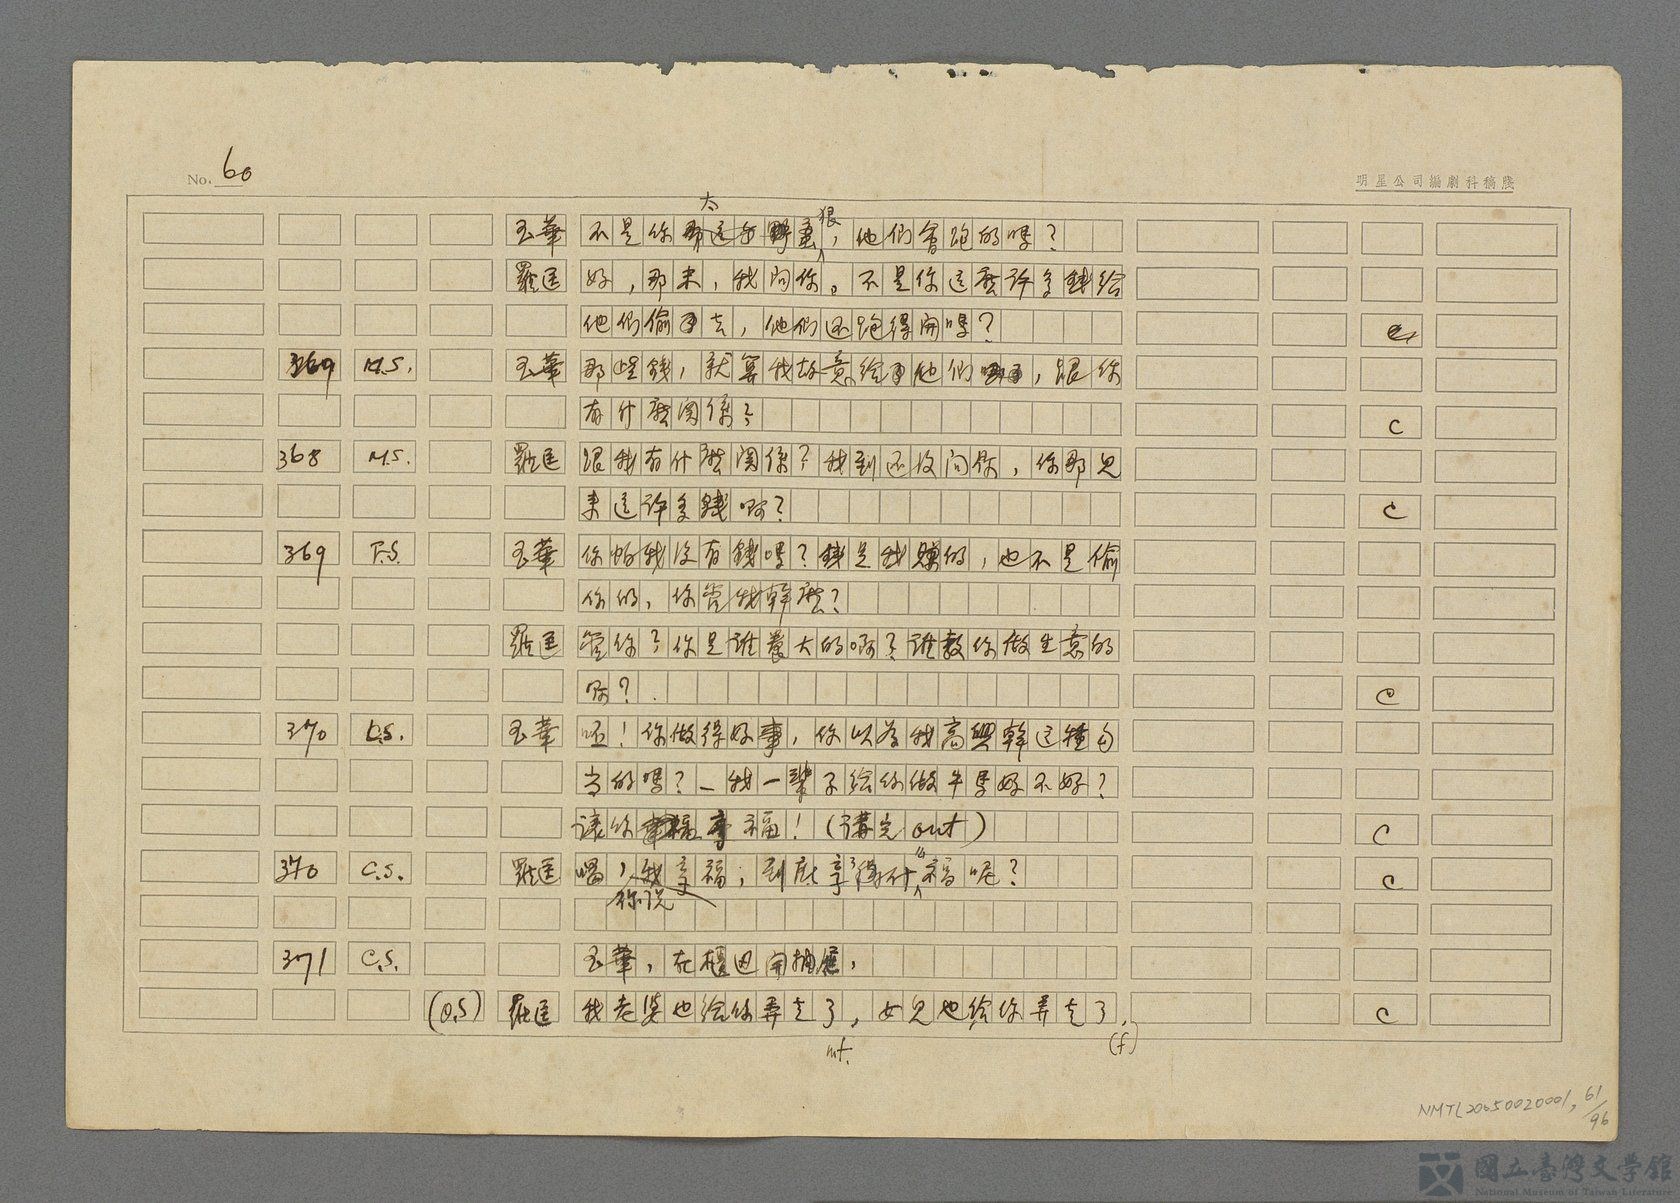 No. 60
明星公司編劇科稿牋
玉華 不是你太狠,他們會跑的嗎?
羅匡 好,那末,我問你。不是你這麽許多錢給
他們偷去,他們還跑得開嗎? c
369 M.S. 玉華 那些錢,就算我故意給他們,跟你
有什麽関係? c
368 M.S. 羅匡 跟我有什麽関係?我到还沒問你,你那兒
来這許多錢啊? c
369 F.S. 玉華 你怕我沒有錢嗎?錢是我賺的,也不是偷
你的,你管我幹麽?
羅匡 管你?你是誰養大的啊?誰教你做生意的
啊? c
370 玉華 呸!你做得好事,你以为我高興幹這種勾
当的嗎?—我一輩子給你做牛馬好不好?
讓你享福!(講完out) c
370 C.S. 羅匡 喝,你说享福,到底享了什么福呢? c
371 C.S. 玉華,在櫃边開抽屜,
(O.S) 羅匡 我老婆也給你弄走了,女兒也給你弄走了, c
mf.
(f)
NMTL20050020001, 61/96
國立臺灣文學館
National Museum of Taiwan Literature